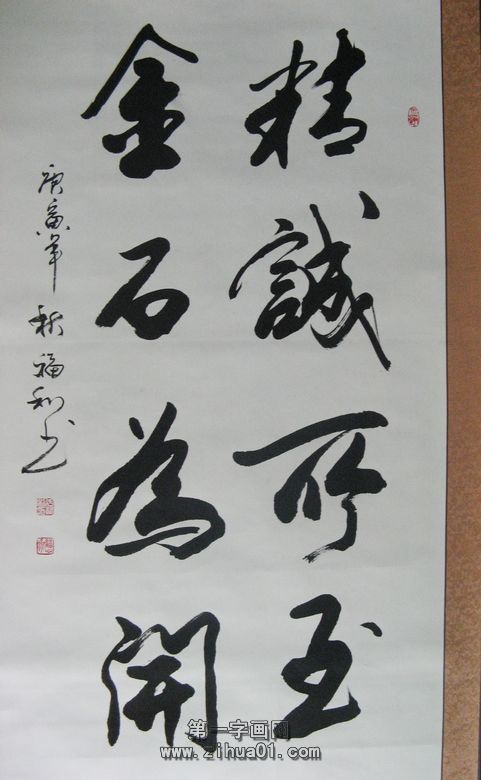 精誠所至
金石為開
庚寅年秋福利书
第一字画网
www.zihua01.com